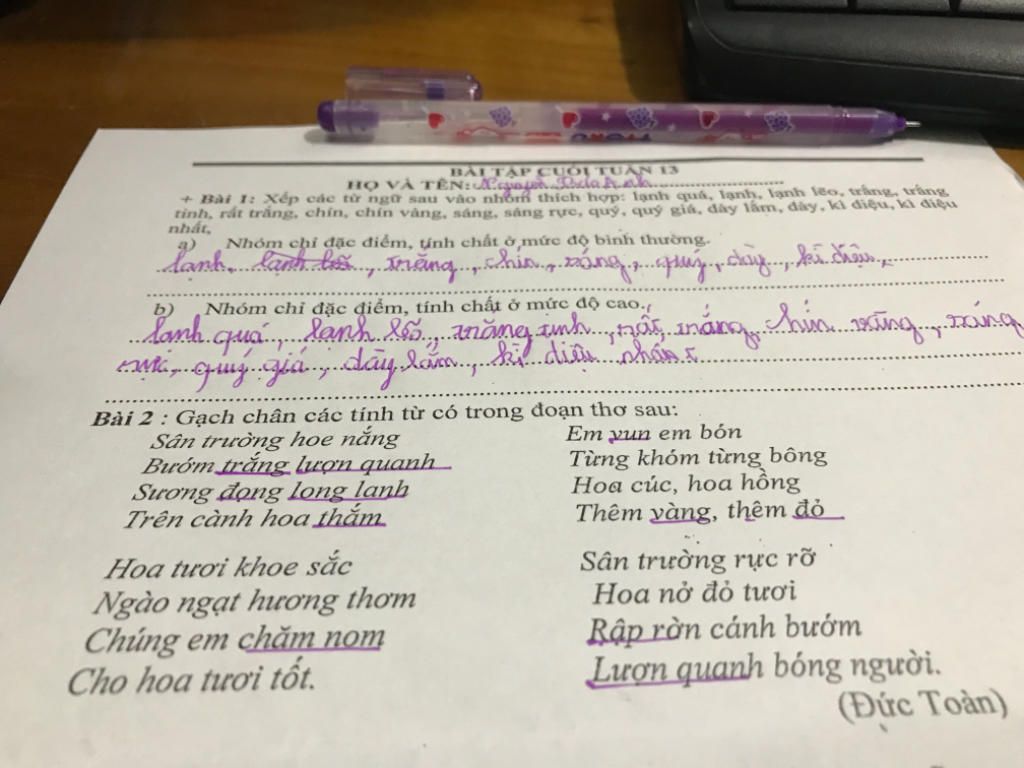 BÀI TẬP CUỐI TUẦN 13
HỌ VÀ TÊN:
+ Bài 1: Xếp các từ ngữ sau vào nhóm thích hợp: lạnh quá, lạnh, lạnh lẽo, trắng, trắng
tinh, rất trắng, chín, chín vàng, sáng, sáng rực, quý, quý giá, dày lắm, dày, kì diệu, kì diệu
nhất,
a) Nhóm chỉ đặc điểm, tính chất ở mức độ bình thường.
lạnh, lạnh lẽo, trắng, chín, sáng, quý, dày, kì diệu,
b) Nhóm chỉ đặc điểm, tính chất ở mức độ cao.
lạnh quá, lạnh lẽo, trắng tinh, rất trắng, chín vàng, sáng
rực, quý giá, dày lắm, kì diệu nhất.
Bài 2 : Gạch chân các tính từ có trong đoạn thơ sau:
Sân trường hoe nắng
Bướm trắng lượn quanh
Sương đọng long lanh
Trên cành hoa thắm
Em vun em bón
Từng khóm từng bông
Hoa cúc, hoa hồng
Thêm vàng, thêm đỏ
Hoa tươi khoe sắc
Ngào ngạt hương thơm
Chúng em chăm nom
Cho hoa tươi tốt.
Sân trường rực rỡ
Hoa nở đỏ tươi
Rập rờn cánh bướm
Lượn quanh bóng người.
(Đức Toàn)